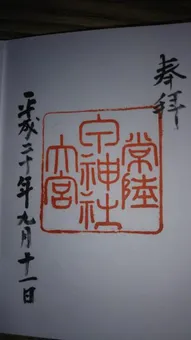 奉拝
常陸
甲神社
大宮
平成二十年九月十一日